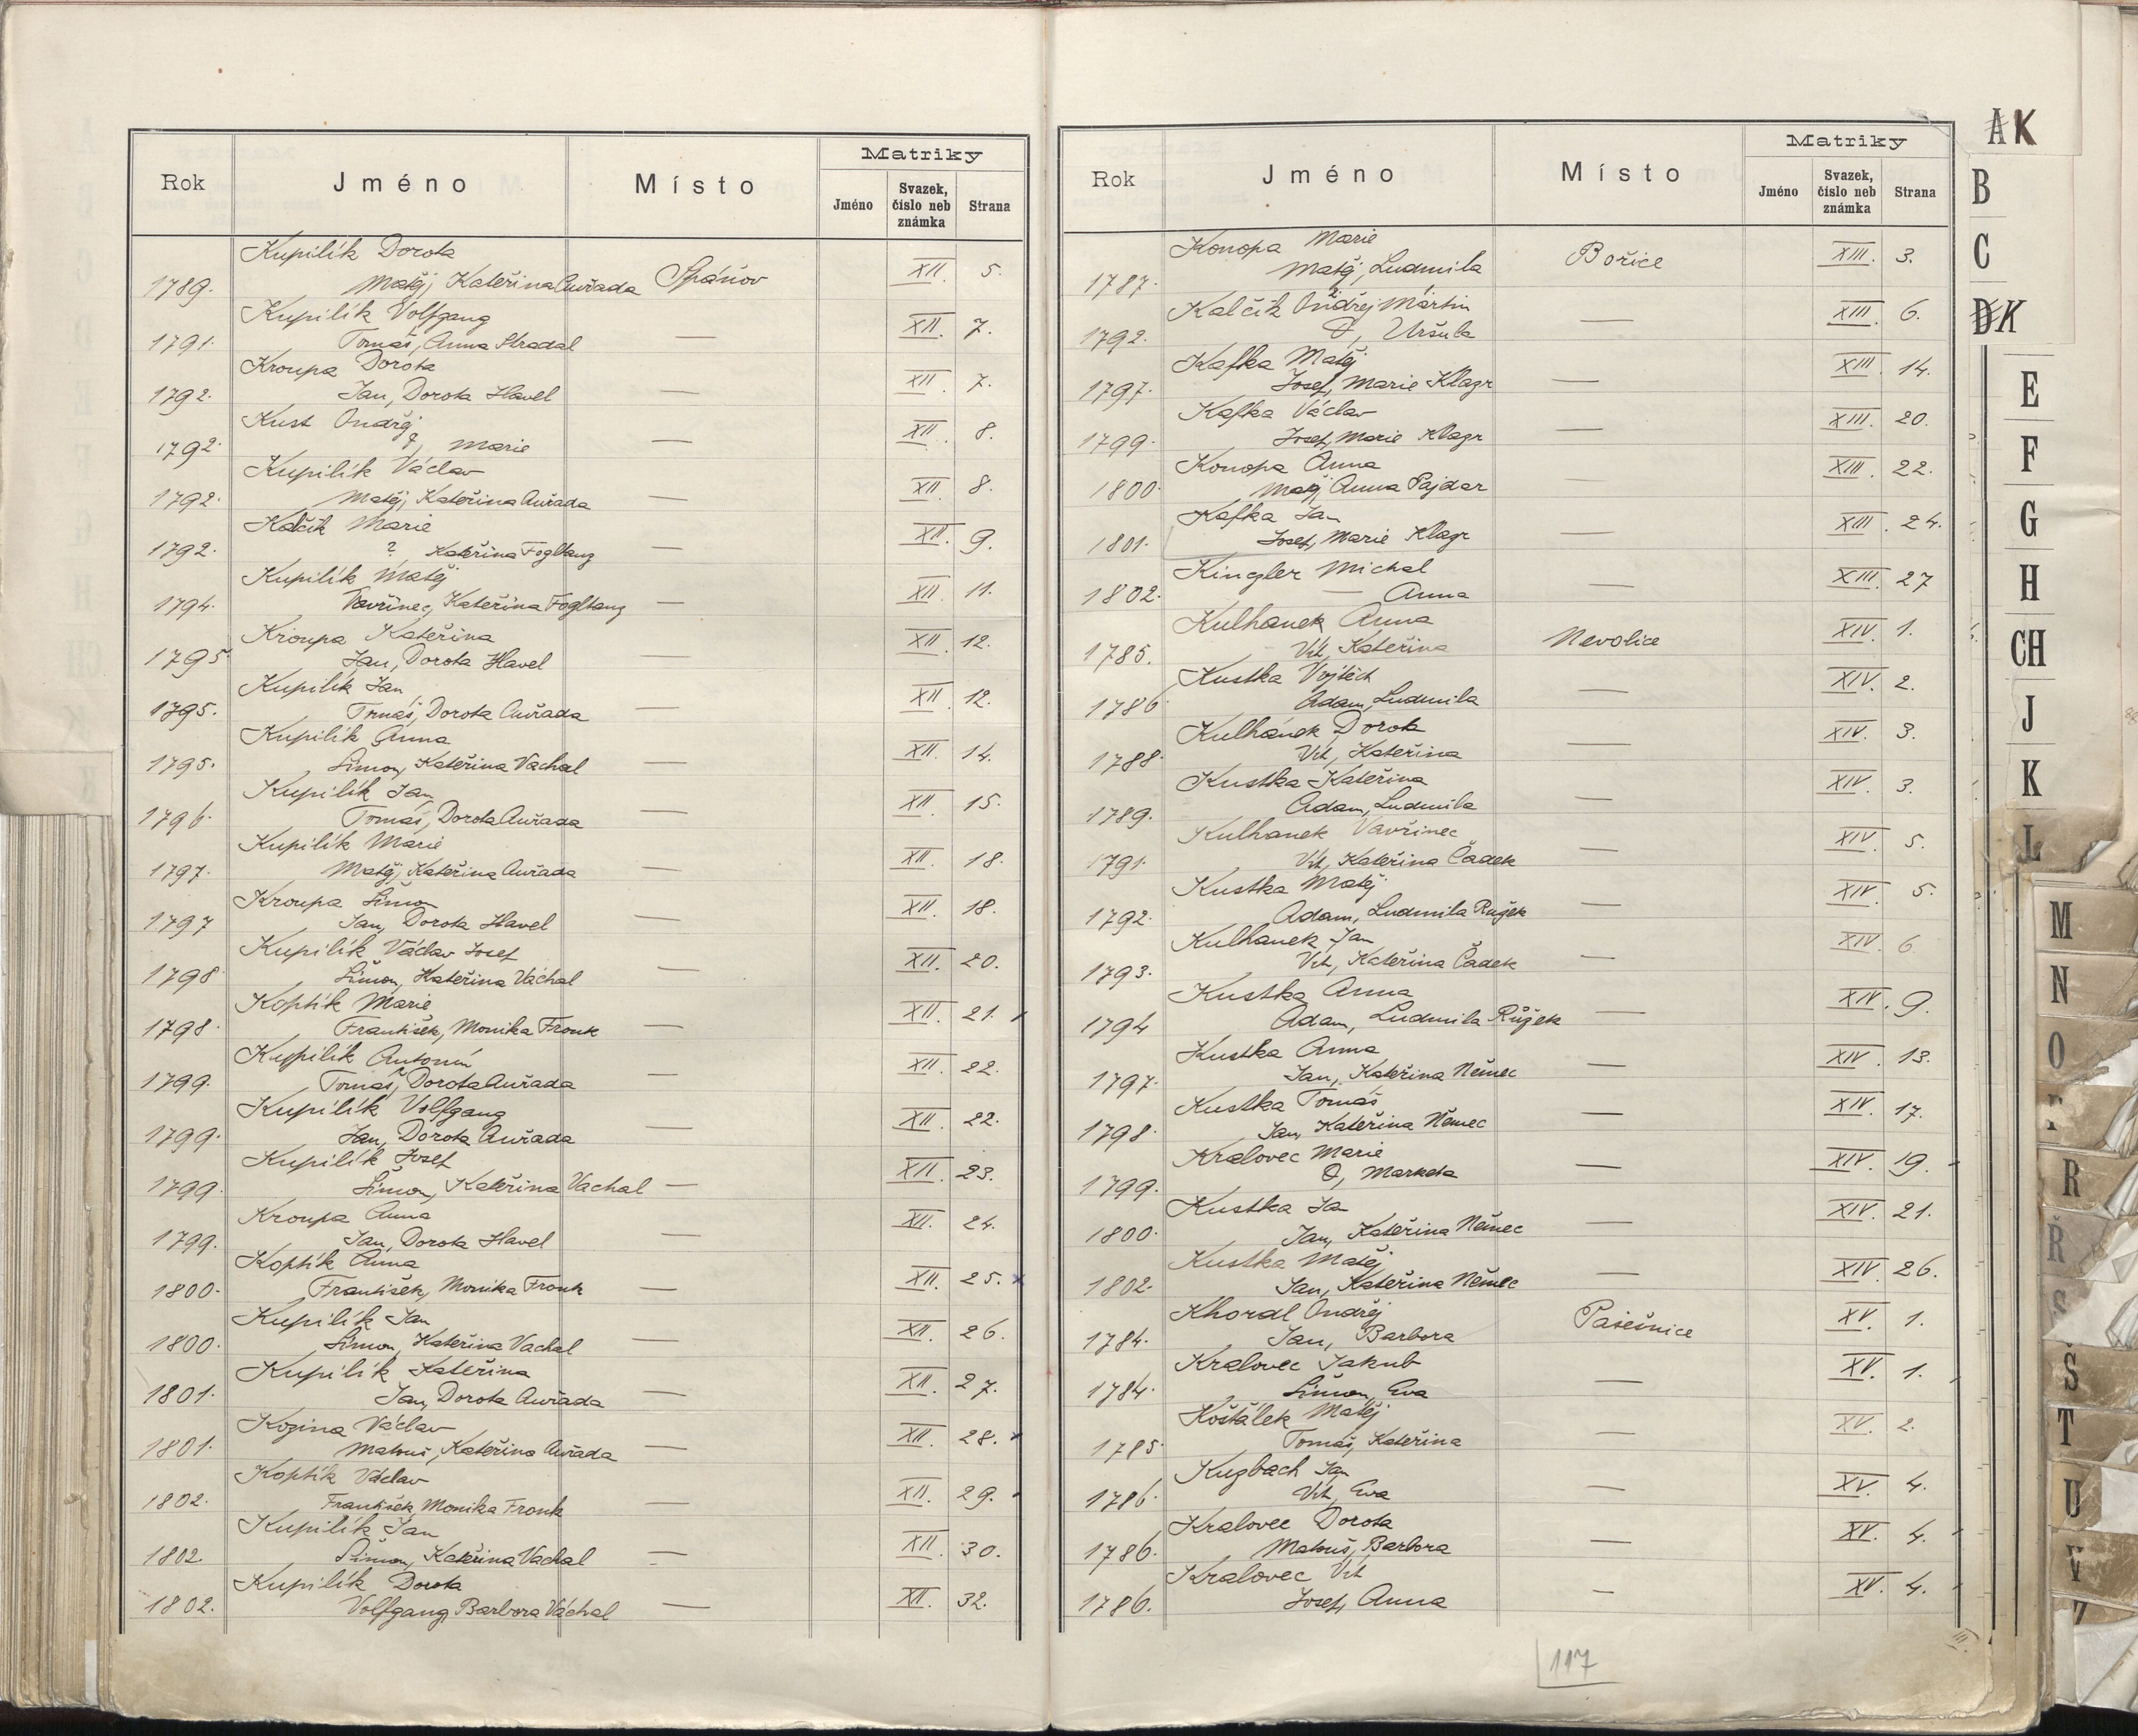 Matriky
Rok Jméno Místo Jméno Svazek, číslo neb známka Strana
Kupilík Dorota
1789. Matěj, Kateřina Auřada Spáňov XII. 5.
Kupilík Volfgang
1791. Tomáš, Anna Stradal — XII. 7.
Kroupa Dorota
1792. Jan, Dorota Havel — XII. 7.
Kust Ondřej
1792. ?, Marie — XII. 8.
Kupilík Václav
1792. Matěj, Kateřina Auřada — XII. 8.
Kalčík Marie
1792. ? Kateřina Fogltanz — XII. 9.
Kupilík Matěj
1794. Vavřinec, Kateřina Fogltanz — XII. 11.
Kroupa Kateřina
1795. Jan, Dorota Havel — XII. 12.
Kupilík Jan
1795. Tomáš, Dorota Auřada — XII. 12.
Kupilík Anna
1795. Šimon, Kateřina Vachal — XII. 14.
Kupilík Jan
1796. Tomáš, Dorota Auřada — XII. 15.
Kupilík Marie
1797. Matěj, Kateřina Auřada — XII. 18.
Kroupa Šimon
1797 Jan, Dorota Havel — XII. 18.
Kupilík Václav Josef
1798 Šimon, Kateřina Váchal — XII. 20.
Koptík Marie
1798. František, Monika Fronk — XII. 21.
Kupilík Antonín
1799. Tomáš, Dorota Auřada — XII. 22.
Kupilík Volfgang
1799. Jan, Dorota Auřada — XII. 22.
Kupilík Josef
1799. Šimon, Kateřina Vachal — XII. 23.
Kroupa Anna
1799. Jan, Dorota Havel — XII. 24.
Koptík Anna
1800. František, Monika Fronk — XII. 25. x
Kupilík Jan
1800. Šimon, Kateřina Vachal — XII. 26.
Kupilík Kateřina
1801. Jan, Dorota Auřada — XII. 27.
Kozina Václav
1801. Matouš, Kateřina Auřada — XII. 28.
Koptík Václav
1802. František, Monika Fronk — XII. 29.
Kupilík Jan
1802. Šimon, Kateřina Vachal — XII. 30.
Kupilík Dorota
1802. Volfgang, Barbora Váchal — XII. 32.
Matriky
Rok Jméno Místo Jméno Svazek, číslo neb známka Strana
Konopa Marie
1787. Matěj, Ludmila Bořice XIII. 3.
Kalčík Ondřej Martin
1792. Uršula — XIII. 6.
Kafka Matěj
1797. Josef, Marie Klagr — XIII. 14.
Kafka Václav
1799. Josef, Marie Klagr — XIII. 20.
Konopa Anna
1800. Matěj, Anna Pajdar — XIII. 22.
Kafka Jan
1801. Josef, Marie Klagr — XIII. 24.
Kingler Michal
1802. — Anna — XIII. 27
Kulhanek Anna
1785. Vít, Kateřina Nevolice XIV. 1.
Kustka Vojtěch
1786 Adam, Ludmila — XIV. 2.
Kulhánek Dorota
1788. Vít, Kateřina — XIV. 3.
Kustka Kateřina
1789. Adam, Ludmila — XIV. 3.
Kulhanek Vavřinec
1791. Vít, Kateřina Čadek — XIV. 5.
Kustka Matěj
1792. Adam, Ludmila Ružek — XIV. 5.
Kulhanek Jan
1793. Vít, Kateřina Čadek — XIV. 6
Kustka Anna
1794 Adam, Ludmila Růžek — XIV. 9.
Kustka Anna
1797. Jan, Kateřina Němec — XIV. 13.
Kustka Tomáš
1798. Jan, Kateřina Němec — XIV. 17.
Kralovec Marie
1799. Marketa — XIV. 19.
Kustka Ja
1800. Jan, Kateřina Němec — XIV. 21.
Kustka Matěj
1802. Jan, Kateřina Němec — XIV. 26.
Khordl Ondřej
1784. Jan, Barbora Pasečnice XV. 1.
Kralovec Jakub
1784. Šimon, Eva — XV. 1.
Košťálek Matěj
1785. Tomáš, Kateřina — XV. 2.
Kuzbach Jan
1786. Vít, Eva — XV. 4.
Kralovec Dorota
1786. Matouš, Barbora — XV. 4.
Kralovec Vít
1786. Josef, Anna — XV. 4.
117
A K
B
C
D K
E
F
G
H
CH
J
K
L
M
N
O
R
Ř
S
Š
T
U
V